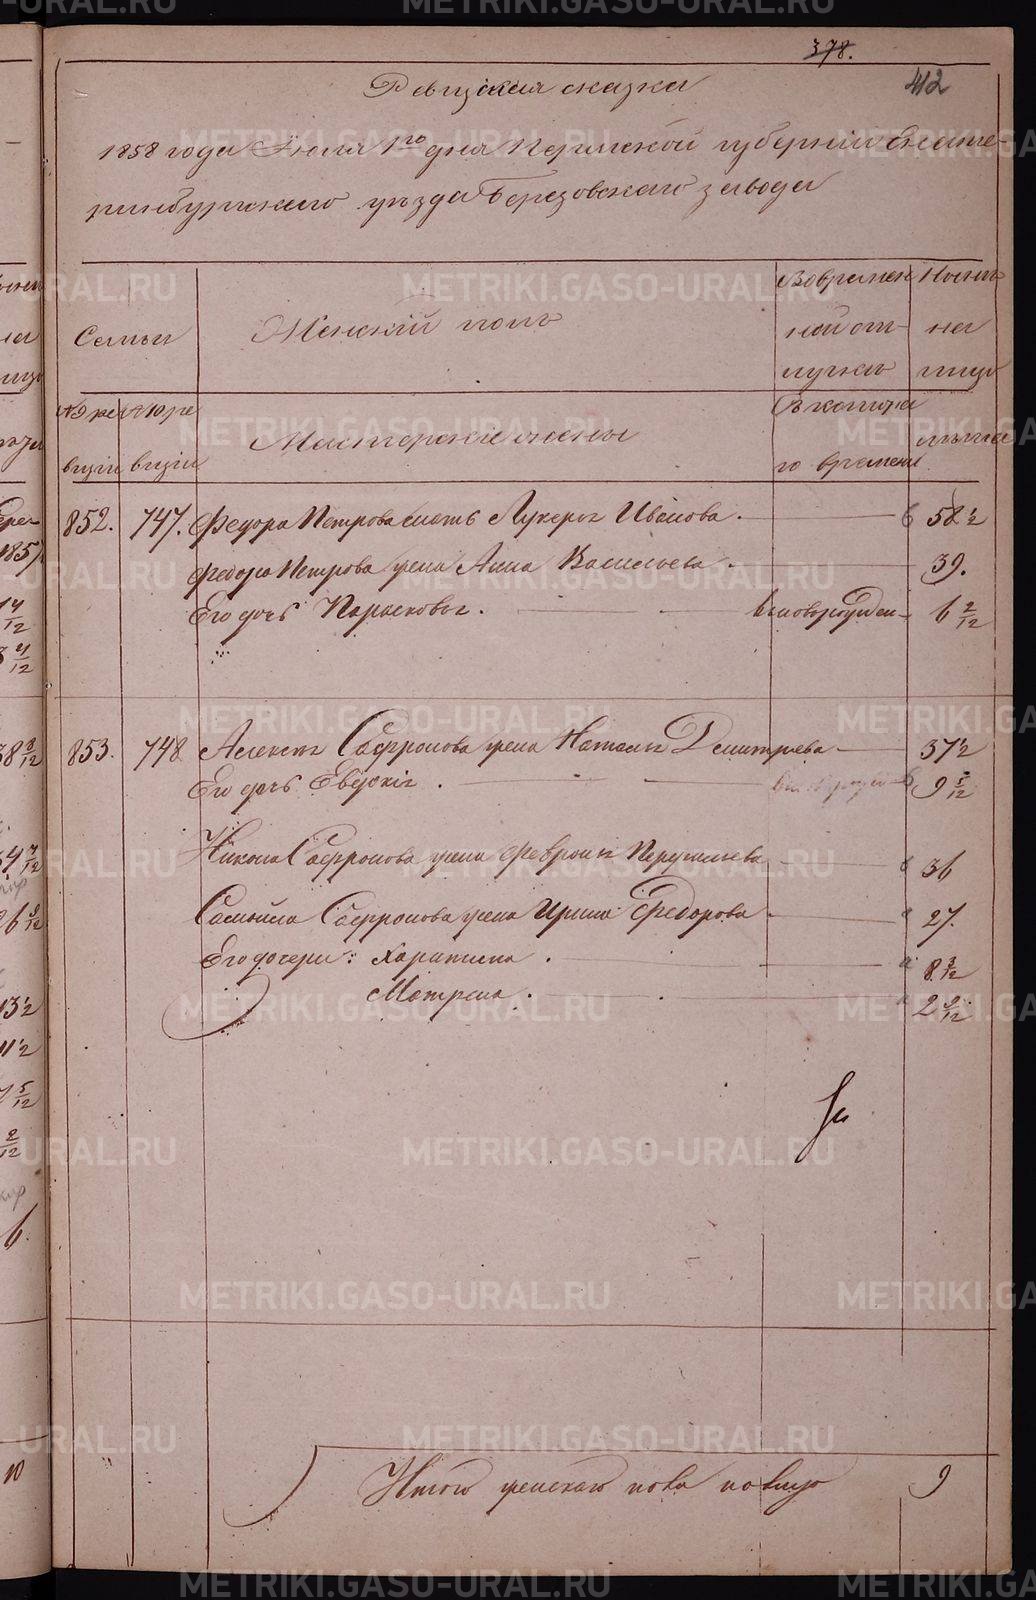 378.
412
Ревизская сказка
1858 года Июля 1го дня Пермской губернии Екате-
ринбургскаго уѣзда Березовскаго завода
Семьи
Женскій полъ
Вовремен
ной от-
лучкѣ
Ныне
на
лицо
№ 9 ре
визіи
№ 10 ре
визіи
Мастерскіе жены
Съ котора
го времени
лѣта
852. 747. Федора Петрова мать Лукерья Иванова. 58½
Федора Петрова жена Анна Васильева. 39.
Его дочь Парасковья. вновьрожден 6 2/12
853. 748 Алексея Сафронова жена Наталья Дмитриева 37½
Его дочь Евдокія. 9 5/12
Никона Сафронова жена Февронья Перфильева 36
Самойла Сафронова жена Ирина Федорова 27.
Его дочери: Харитина. 8 3/12
Матрена. 2 9/12
Итого женскаго пола налицо 9
METRIKI.GASO-URAL.RU